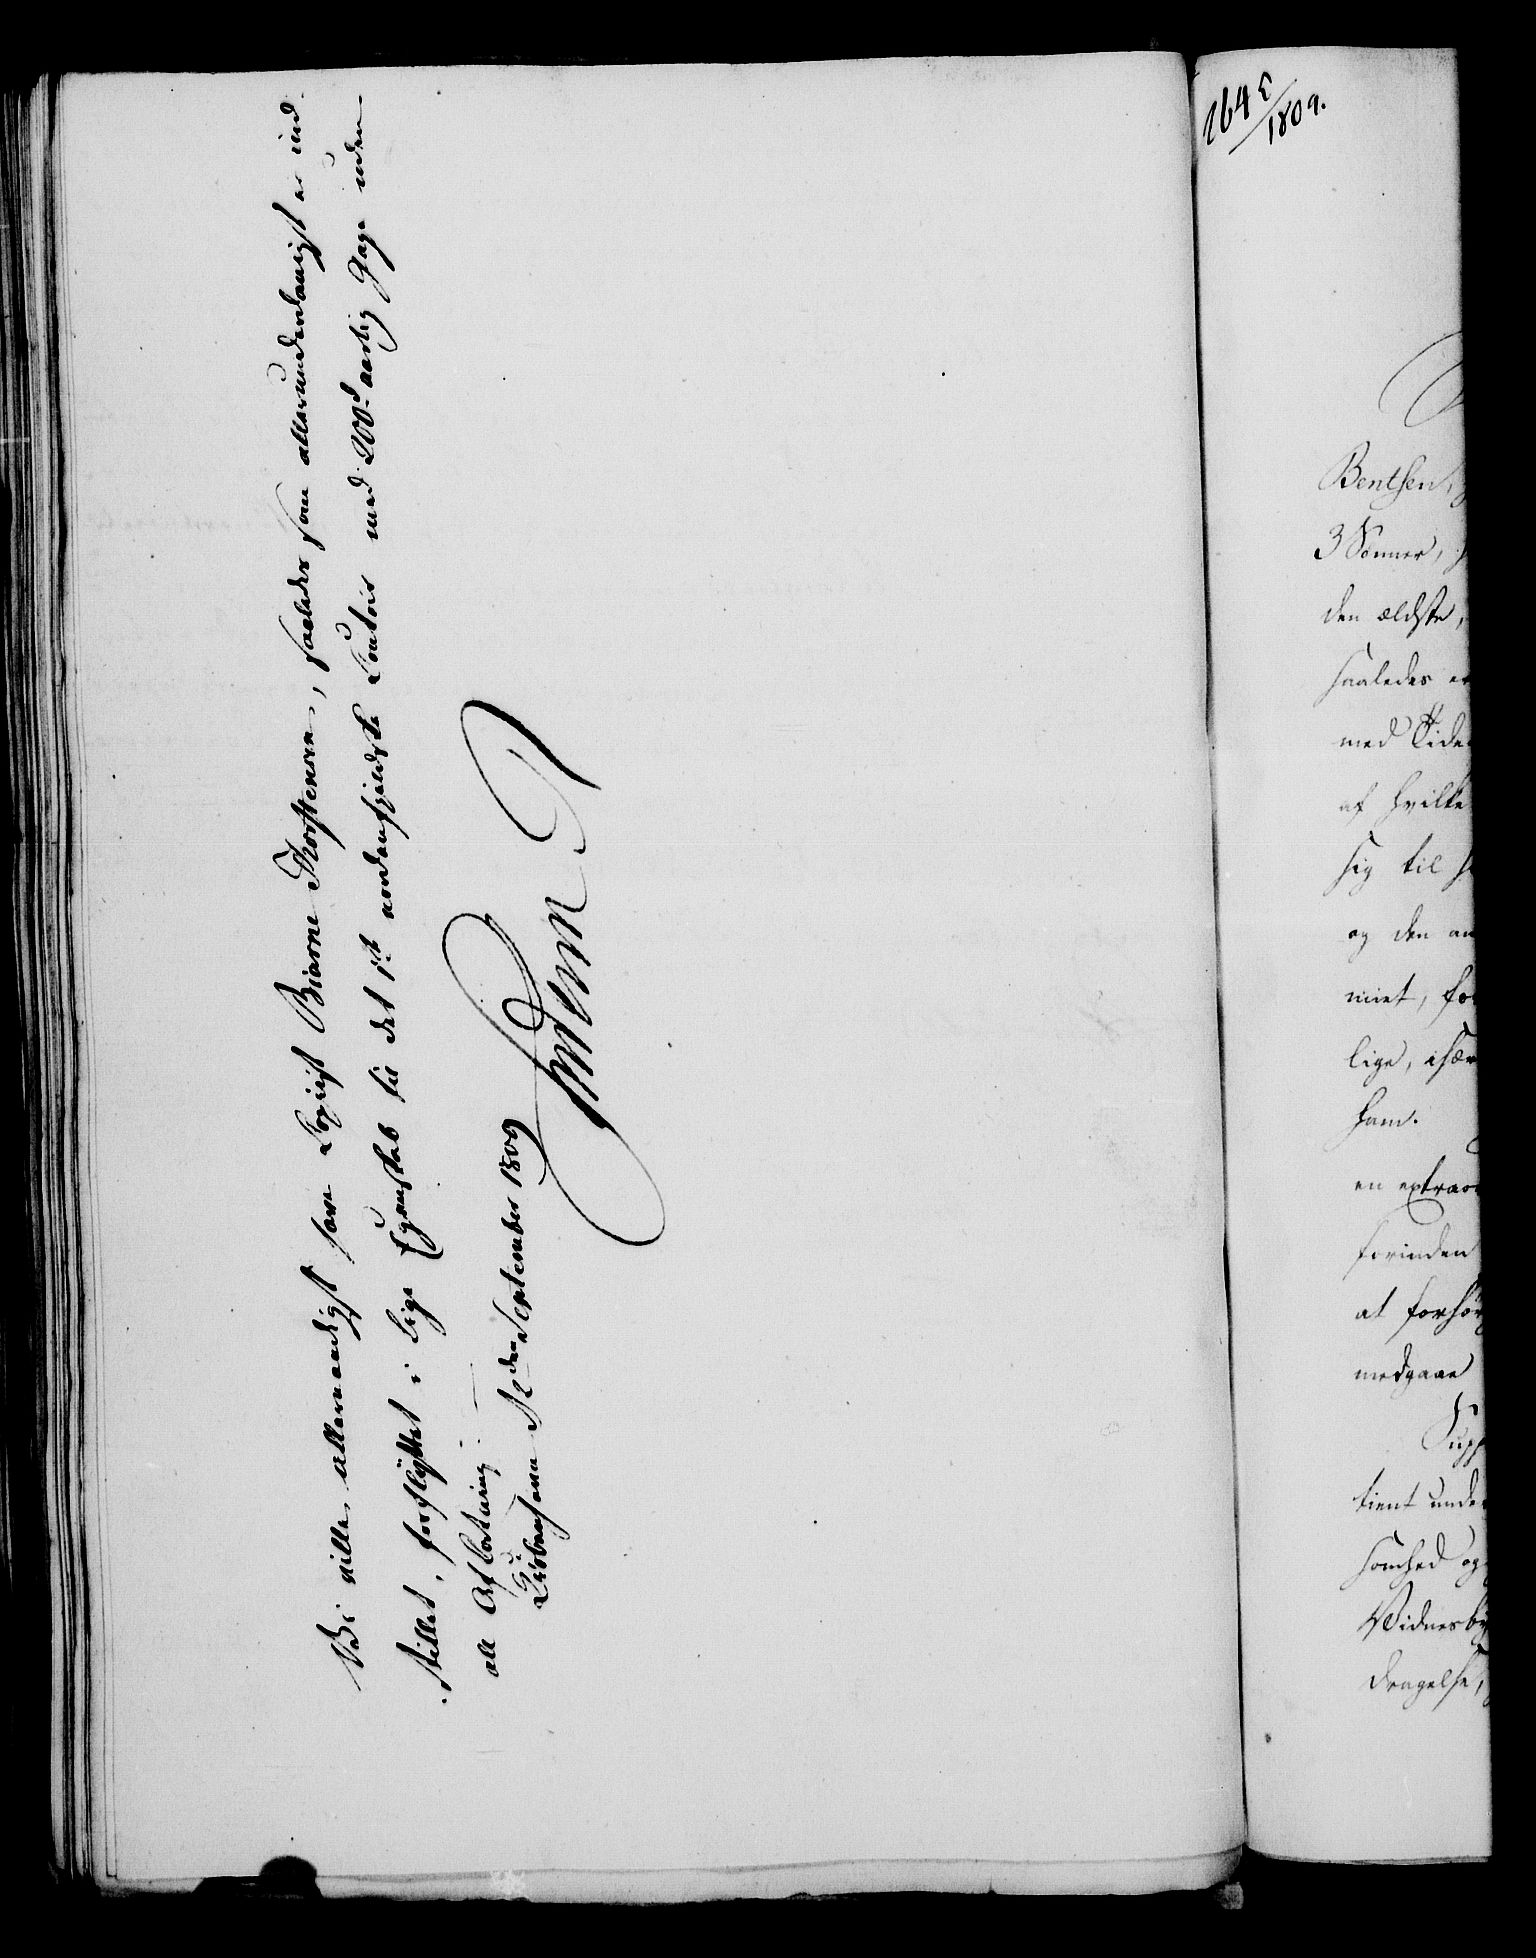 Vi ville allernaadigst have Copiist Biarne Thorstensen, saaledes som allerunderdanigst er ind-
stillet, forflyttet i lige Egenskab til det 1ste nordenfjeldske Contoir med 200 rd aarlig Gage uden
al Afkortning.
Kiøbenhavn d 12den September 1809
Frederik R
164 c/1809.
Bentsen,
3 Sønner,
den ældste,
saaledes er
med Tide
af hvilke
sig til
og den an
niet, for
lige, især
ham.
en extraor
forinden
at forsør
medgaae
Supp
tient unde
somhed og
Vidnesby
dragelse,